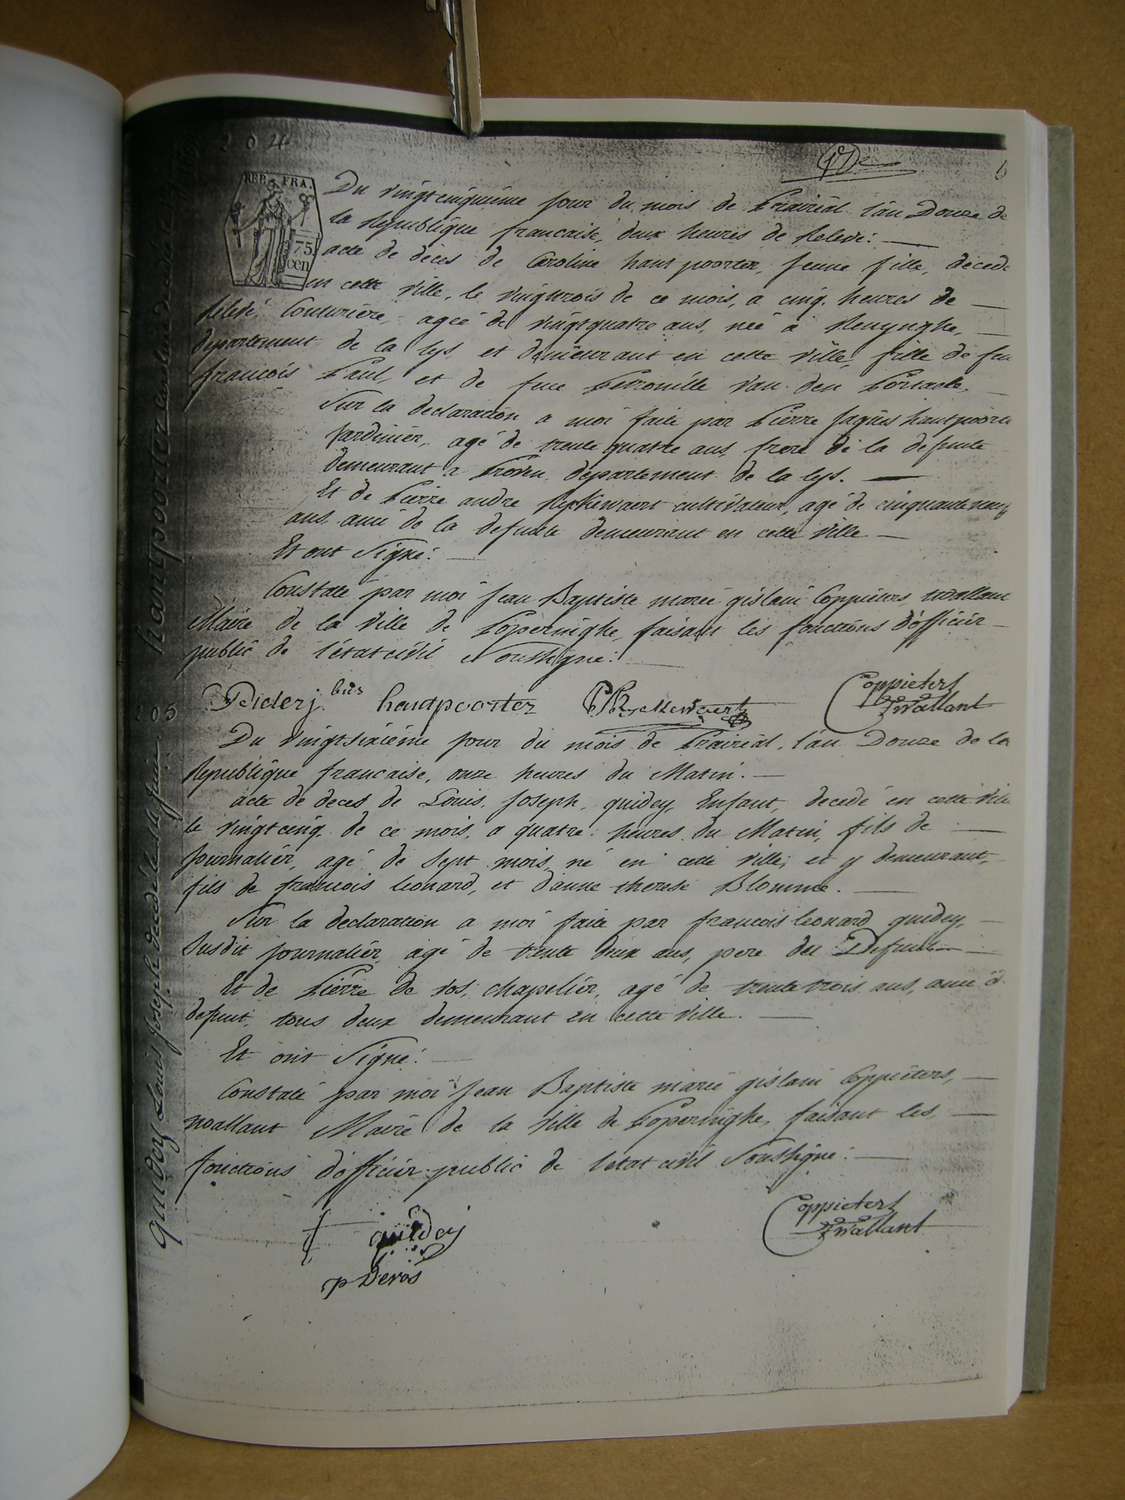 204
REP. FRA.
75
cen
Du vingtcinquième jour du mois de Prairial l'an Douze de
la République francaise, deux heures de Relevé:
acte de décès de Caroline hantpoorter, jeune fille, décedé
en cette ville, le vingttrois de ce mois, a cinq heures de
relevé, Couturière, ageé de vingtquatre ans, neé à Renynghe,
département de la Lys et demeurant en cette ville, fille de feu
francois Paul, et de feue Petronille van den
Sur la declaration a moi faite par Pierre Jaques hantpoorter
Jardinier, agé de trente quatre ans, frere de la defunte
demeurant a Proven departement de la lys.
Et de Pierre andre cultivateur, agé de cinquante
ans ami de la defunte demeurant en cette ville
Et ont Signé:
Constaté par moi Jean Baptiste marie gislain Coppieters, wallant
Maire de la ville de Poperinghe, faisant les fonctions d'officier
public de l'etat civil Soussigné:
hantpoorter Coppieters
Wallant
205
Du vingtsixième jour du mois de Prairial, l'an Douze de la
Republique francaise, onze heures du Matin.
acte de deces de Louis, Joseph, quidey, Enfant, decedé en cette ville
le vingtcinq de ce mois, a quatre heures du Matin, fils de
Journalier, agé de Sept mois, né en cette ville, et y demeurant,
fils de francois leonard, et d'anne therese Blomme.
Sur la declaration a moi faite par francois leonard quidey,
Susdit journalier, agé de trente deux ans, pere du Defunt
Et de Pierre de ros, chapelier, agé de trente trois ans, ami d
defunt, tous deux demeurant en cette ville.
Et ont Signé:
Constaté par moi Jean Baptiste marie gislain Coppieters,
wallant Maire de la Ville de Poperinghe, faisant les
fonctions d'officier public de l'etat civil Soussigné:
quidey
p Deros
Coppieters
Wallant
quidey Louis Joseph decedé le